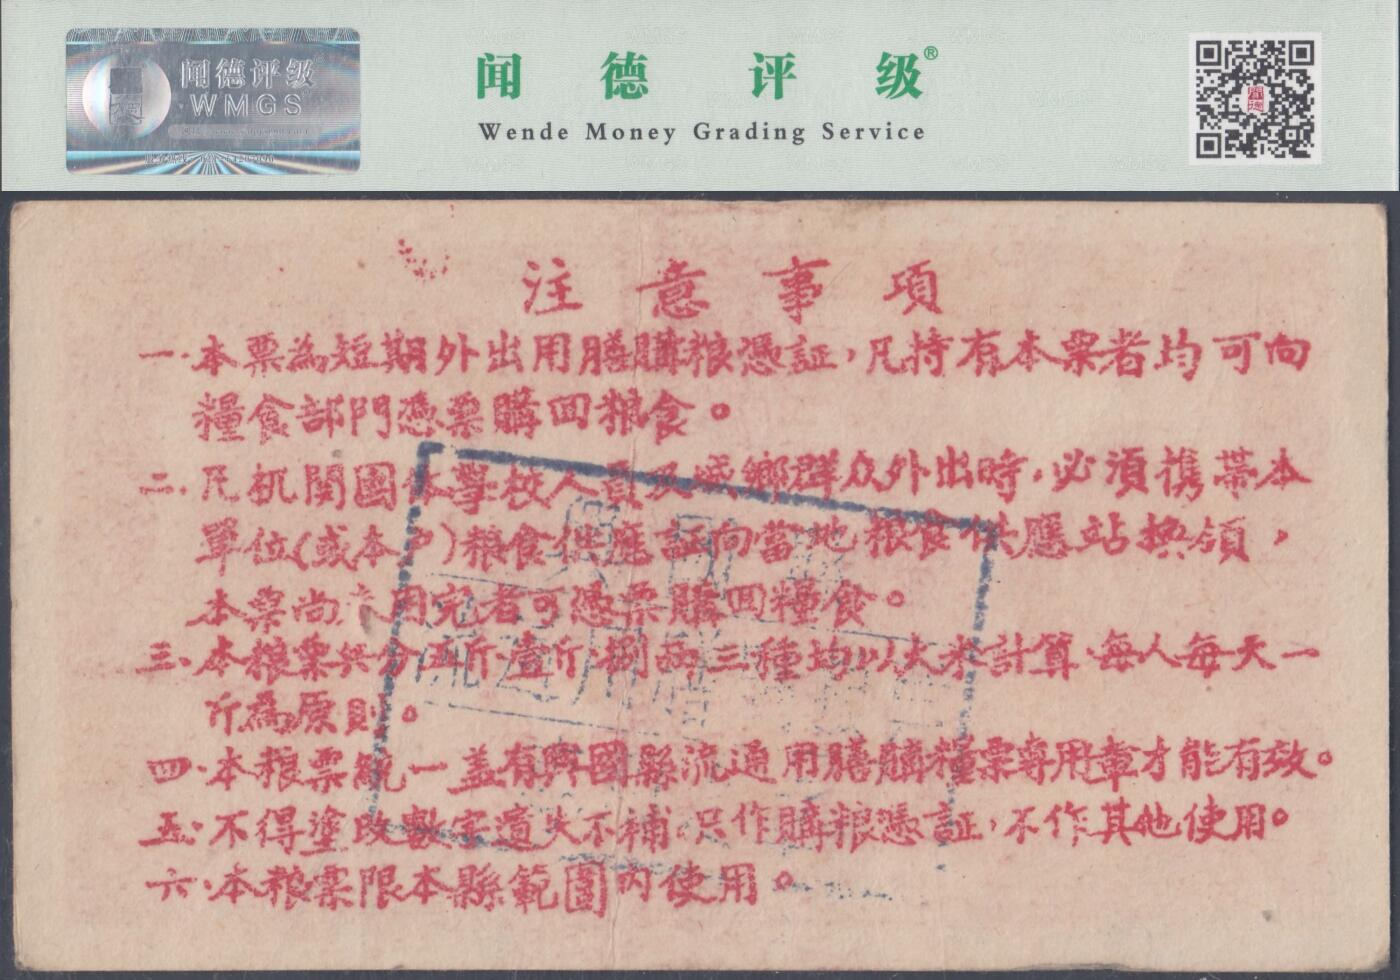 闻德评级
WMGS
闻德评级®
Wende Money Grading Service
注意事項
一.本票為短期外出用膳購粮憑証,凡持有本票者均可向
糧食部門憑票購回粮食。
二.凡机関國体學校人員及城鄉群众外出時,必須携帶本
單位(或本户)粮食供應証向當地粮食供應站换領,
本票尚未用完者可憑票購回糧食。
三、本粮票共分五斤、壹斤、捌両三種均以大米計算,每人每天一
斤為原則。
四.本粮票統一盖有興國縣流通用膳購糧票專用章才能有效。
五.不得塗改數字遺失不補,只作購粮憑証,不作其他使用。
六.本粮票限本縣範圍内使用。
興國縣
流通用膳購糧票